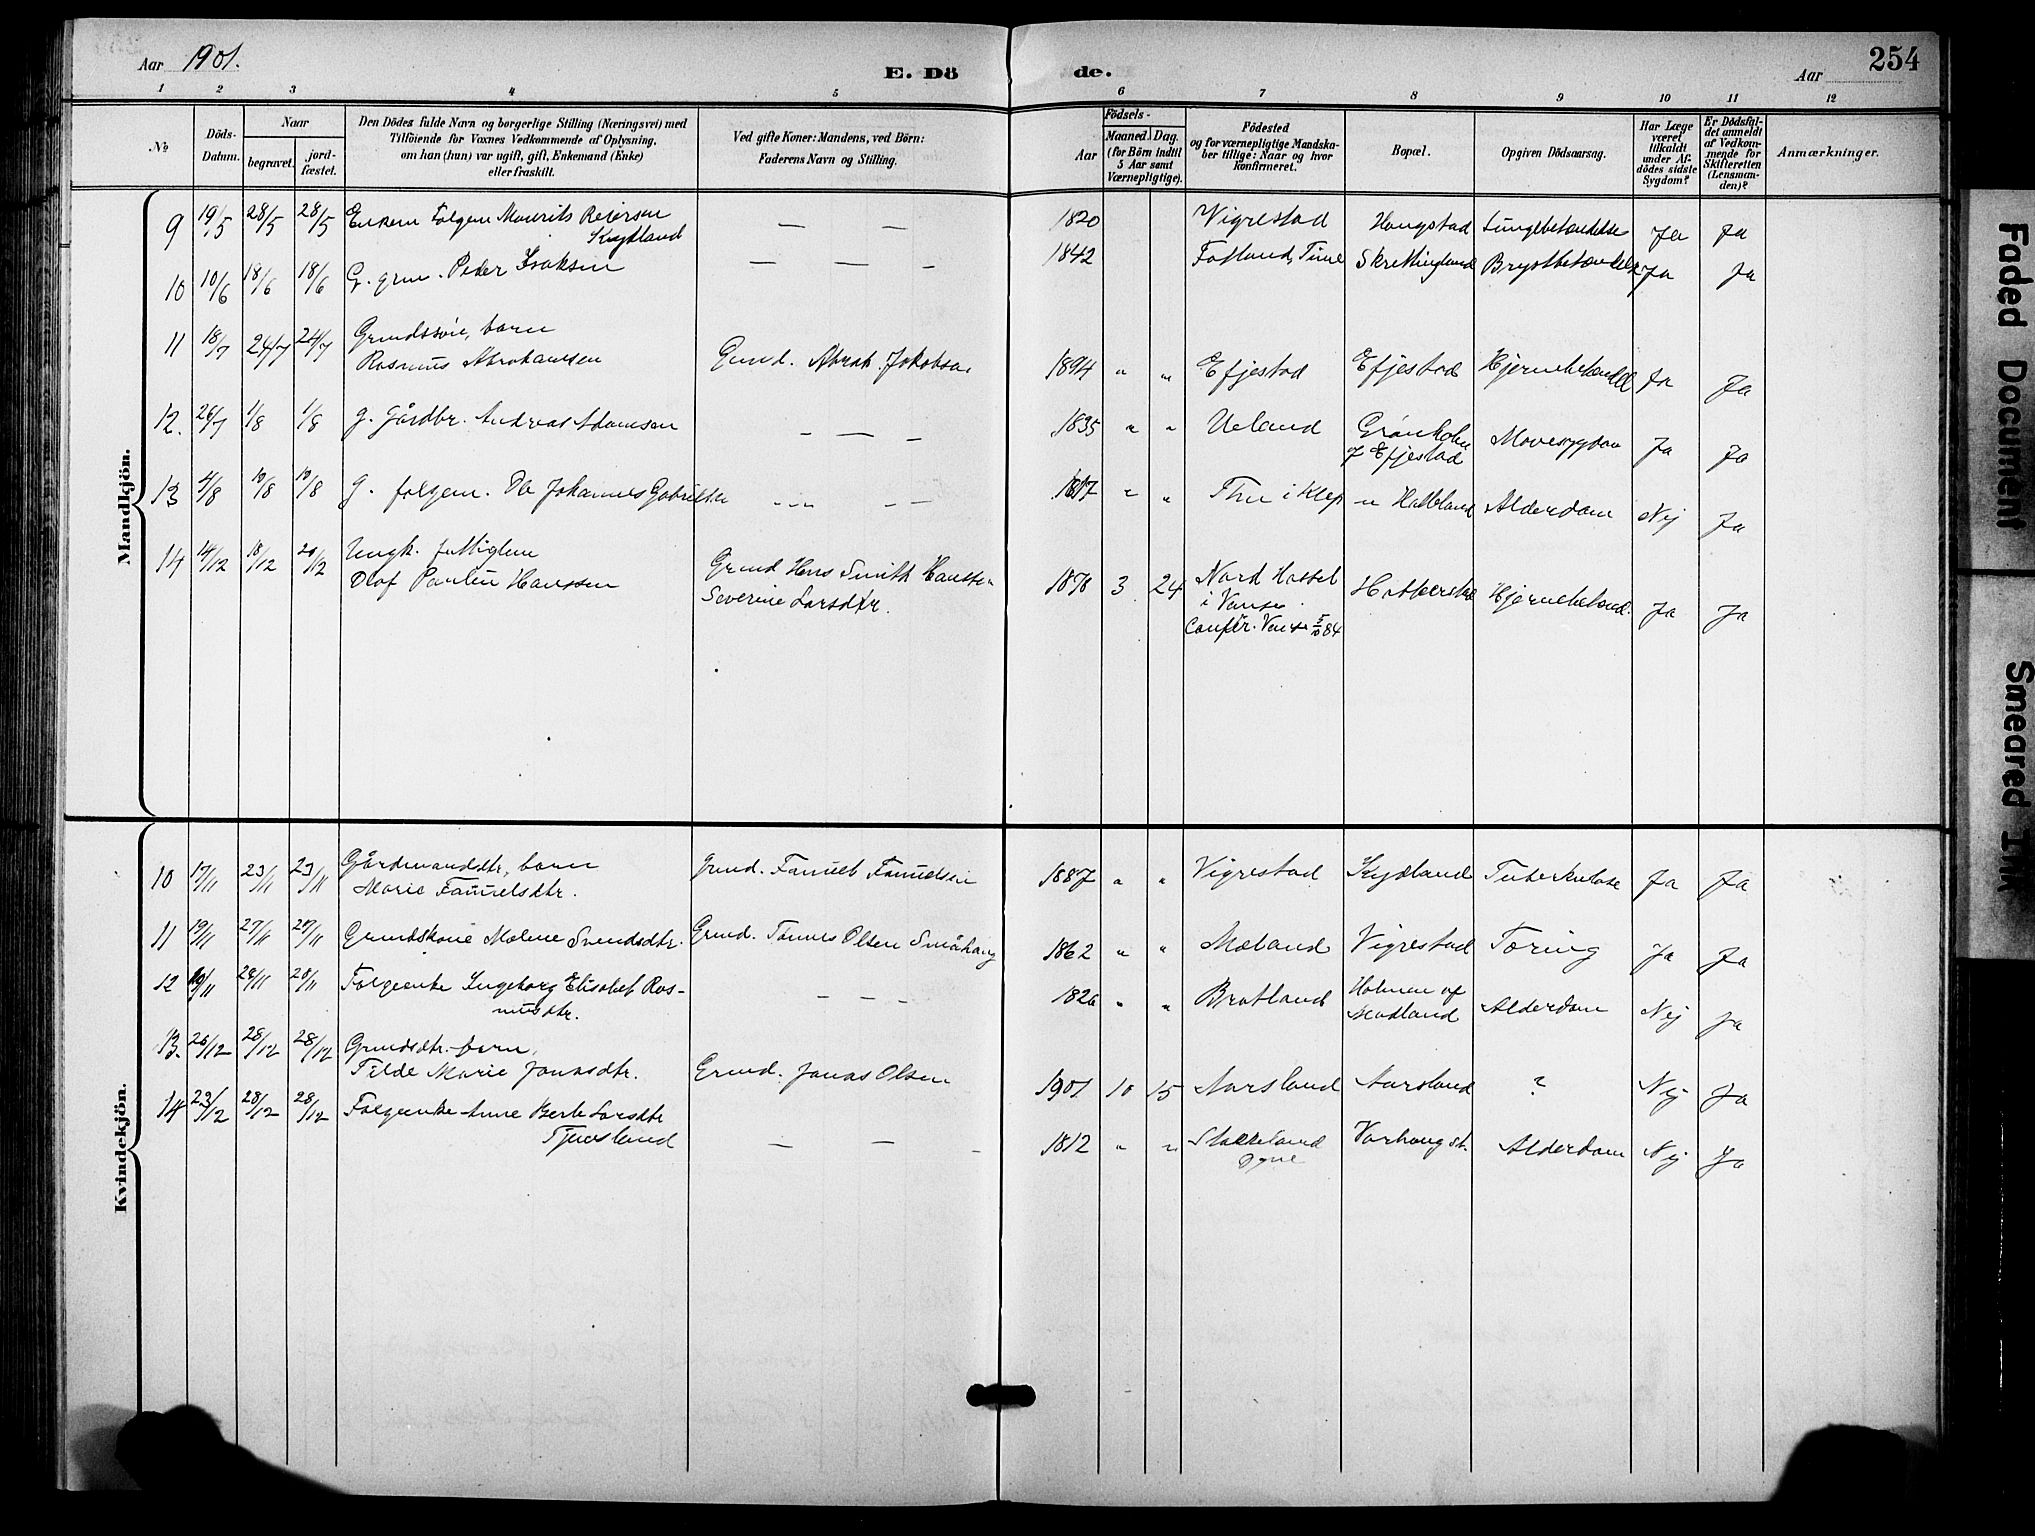 Aar 1901.
E. Dö
de.
Aar
254
1 2 3 4 5 6 7 8 9 10 11 12
No
Döds-Datum.
Naar
begravet.
jord-fæstet.
Den Dödes fulde Navn og borgerlige Stilling (Næringsvei) med
Tilföiende for Voxnes Vedkommende af Oplysning,
om han (hun) var ugift, gift, Enkemand (Enke)
eller fraskilt.
Ved gifte Koner: Mandens, ved Börn:
Faderens Navn og Stilling.
Födsels-
Aar
Maaned. Dag.
(for Börn indtil
5 Aar samt
Værnepligtige).
Födested
og for værnepligtige Mandska-
ber tillige: Naar og hvor
konfirmeret.
Bopæl.
Opgiven Dödsaarsag.
Har Læge
været
tilkaldt
under Af-
dödes sidste
Sygdom?
Er Dödsfal-
det anmeldt
af Vedkom-
mende for
Skifteretten
(Lensman-
den)?
Anmærkninger.
Mandkjön.
9 19/5 28/5 28/5 Enkem Folgem Maurits Reiersen — — 1820 Vigrestad Haugstad Lungebetændelse Ja Ja
Kydland
10 10/6 18/6 18/6 G. grm. Peder Isaksen — — — 1842 Fotland, Time Skrettingland Brystbetændelse Ja Ja
11 18/7 24/7 24/7
Rasmus Abrahamsen Grmd. Abrah. Jakobsen 1894 " " Efjestad Efjestad Ja Ja
12. 26/7 1/8 1/8 g. Gårdbr. Andreas Adamsen — — — 1835 " " Ueland Mavesygdom Ja Ja
Efjestad
13 4/8 10/8 10/8 g. folgem. Johannes Gabrielsen 1817 " " Thu i Klep Alderdom Nej Ja
14 14/12 18/12 20/12 Ungk.
Olaf Paulin Hanssen Grmd Hans Smith Hanssen
Severine Larsdtr. 1878 3 24 Nord Hassel
i Vanse Ja Ja
Kvindekjön.
10 17/11 23/11 23/11 Gårdmandsdtr, barn
Marie Samuelsdtr. Grmd. Samuel Samuelsen 1887 " " Vigrestad Kydland Tuberkulose Ja Ja
11 19/11 27/11 27/11 Grmdskone Malene Svendsdtr. Grmd. Tønnes Olsen Småhaug 1862 " " Mæland Vigrestad Tæring Ja Ja
12 28/11 28/11 Folgeenke Ingeborg Elisabet Ras-
musdtr. — — — " " Bratland Holmen af
Madland Alderdom Nej Ja
13. 26/12 28/12 28/12 Grmdsdtr. barn,
Tilde Marie Jonasdtr. Grmd. Jonas Olsen 1901 10 15 Aarsland Aarsland ? Nej Ja
14 23/12 28/12 28/12 Folgeenke Anne Berte Larsdtr
— — — 1812 " " Stokkeland Alderdom Nej Ja
Faded Document
Smeared Ink